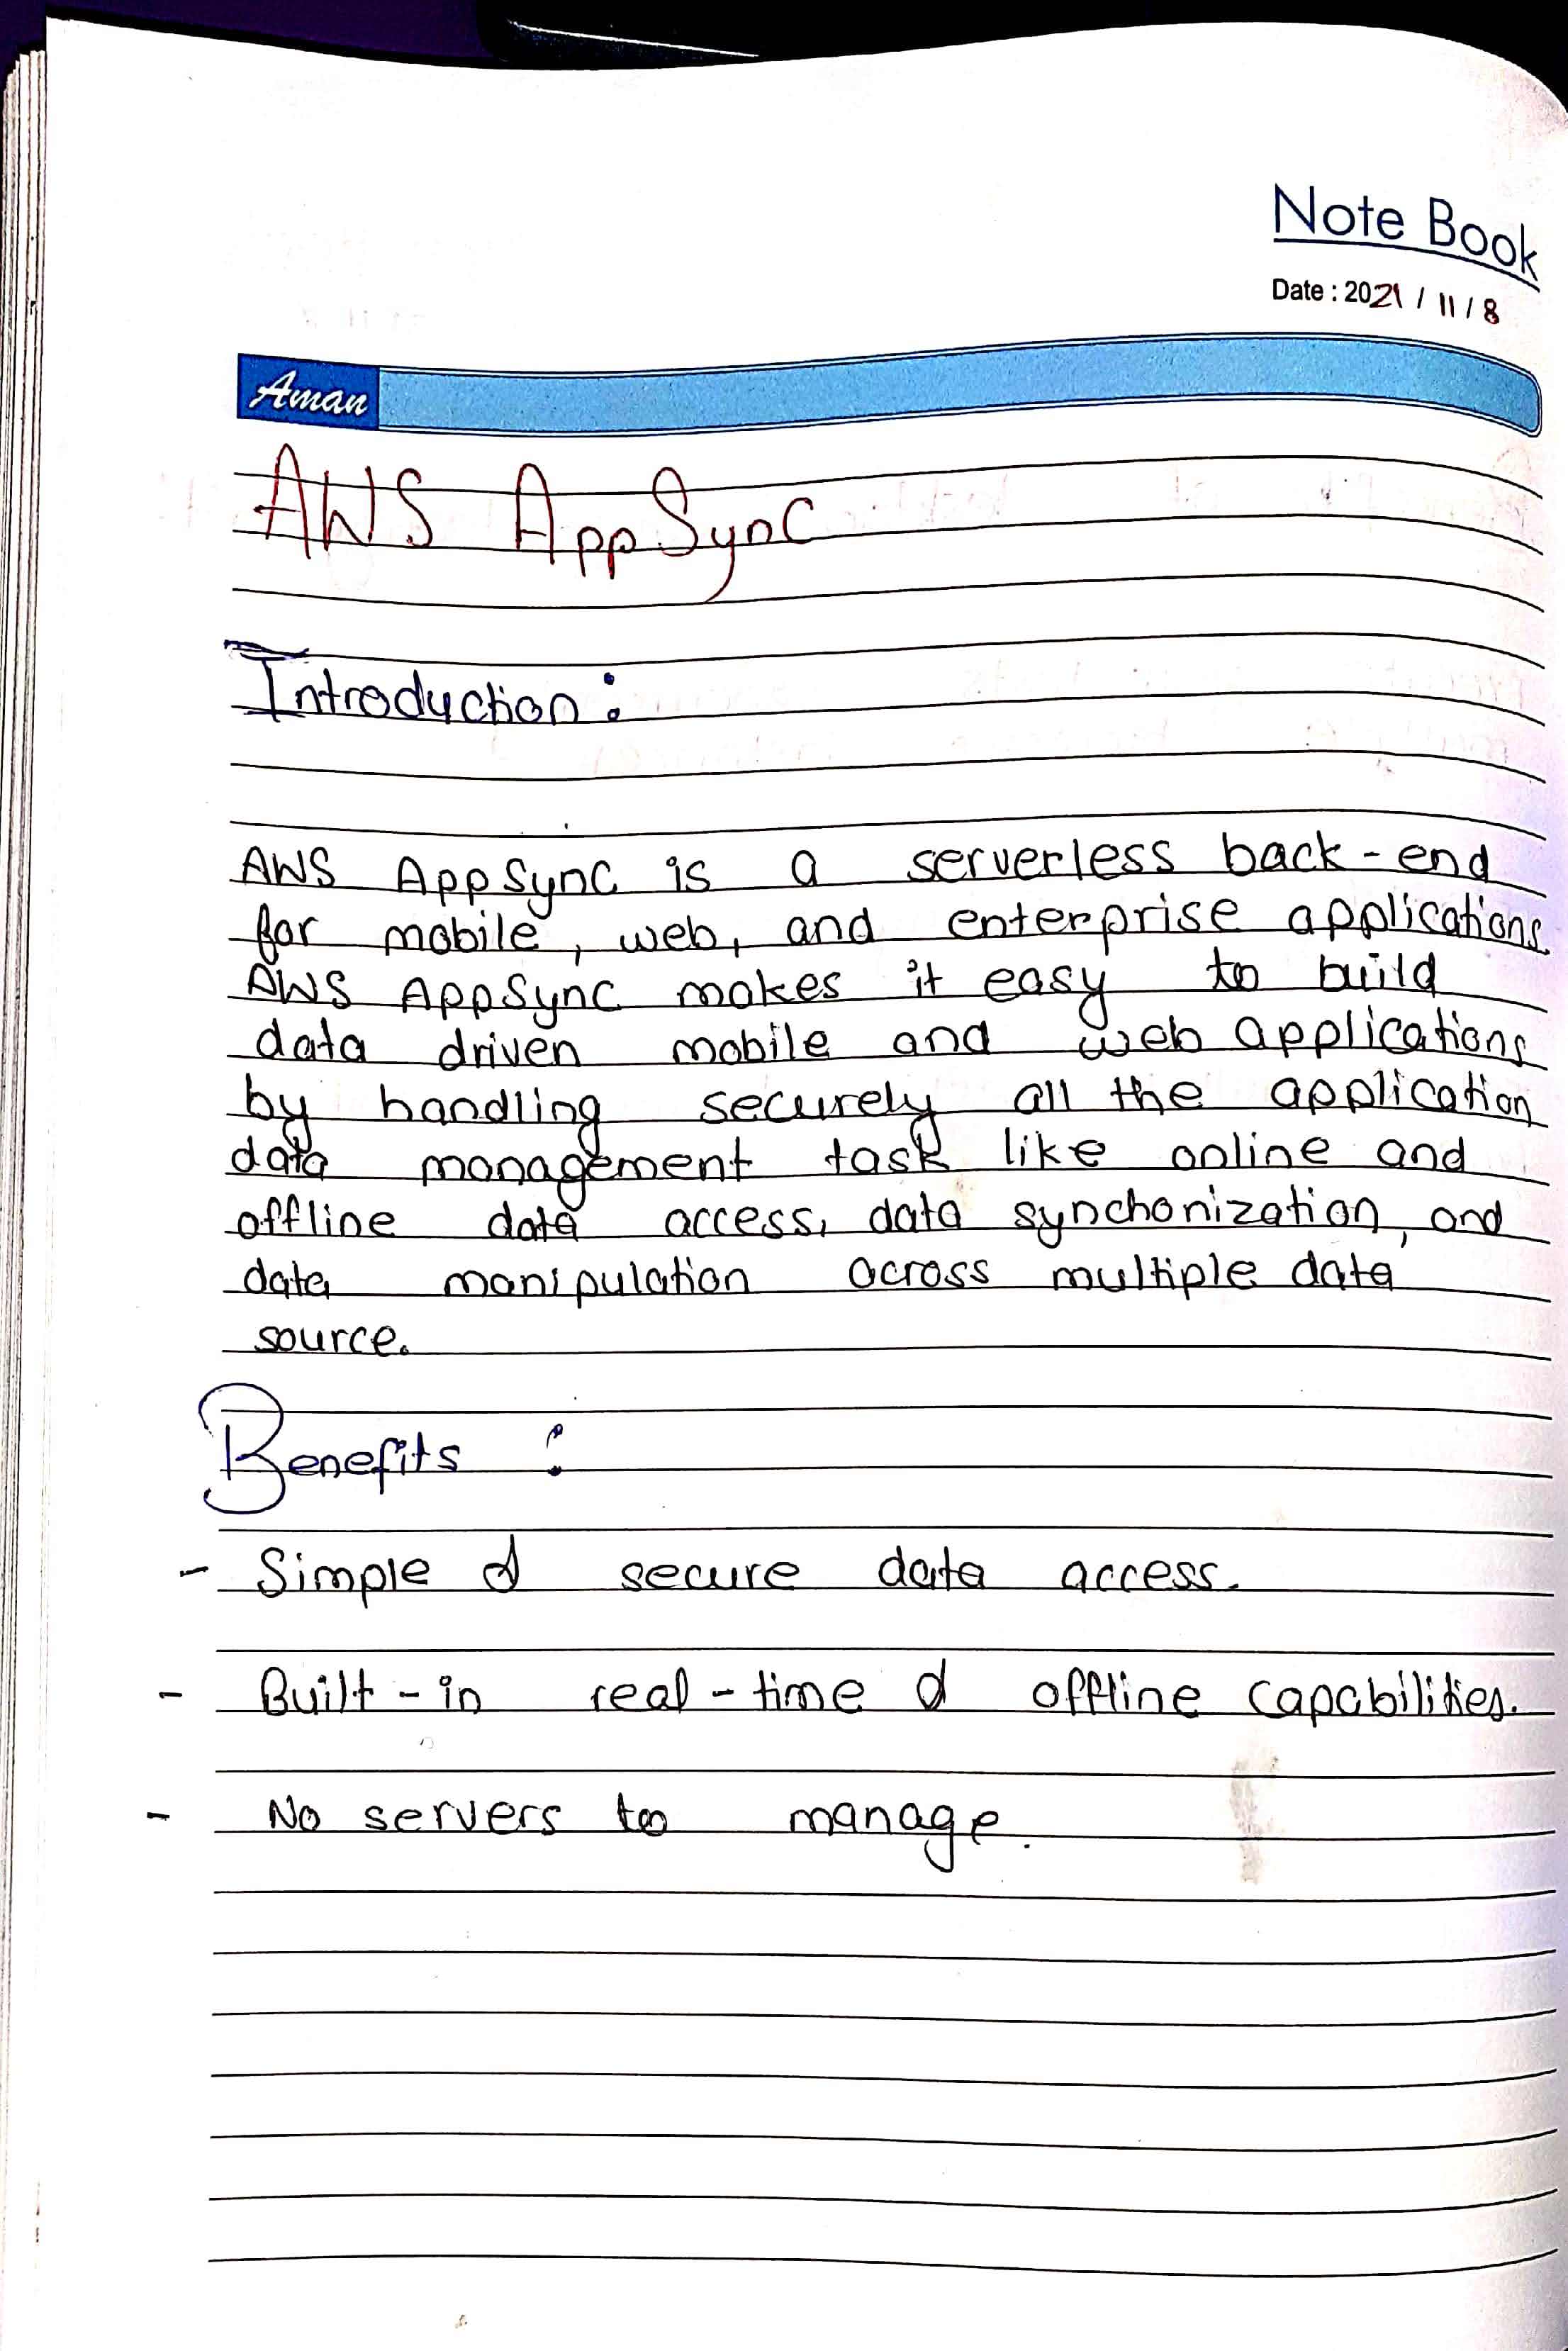 Note Book
Date : 2021 / 11 / 8
Aman
AWS AppSync
Introduction :
AWS AppSync is a serverless back-end
for mobile, web, and enterprise applications.
AWS AppSync makes it easy to build
data driven mobile and web applications
by handling securely all the application
data management task like online and
offline data access, data synchonization, and
data manipulation across multiple data
source.
Benefits :
- Simple & secure data access.
- Built-in real-time & offline capabilities.
- No servers to manage.